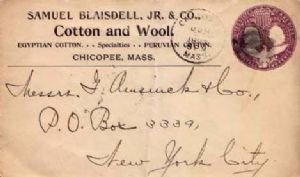 SAMUEL BLAISDELL, JR. & CO.,
Cotton and Wool.
EGYPTIAN COTTON. . . Specialties . . PERUVIAN COTTON.
CHICOPEE, MASS.
MASS
Messrs. G. Amsinck & Co.,
P.O. Box 3339,
New York City.